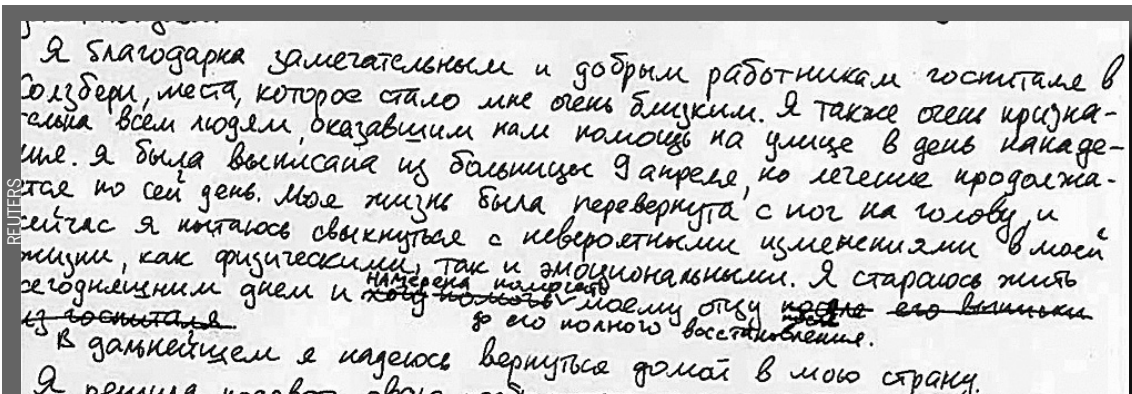 Я благодарна замечательным и добрым работникам госпиталя в
Солзбери, места, которое стало мне очень близким. Я также очень призна-
тельна всем людям, оказавшим нам помощь на улице в день нападе-
ния. Я была выписана из больницы 9 апреля, но лечение продолжа-
ется по сей день. Моя жизнь была перевернута с ног на голову, и
сейчас я пытаюсь свыкнуться с невероятными изменениями в моей
жизни, как физическими, так и эмоциональными. Я стараюсь жить
намерена помогать
сегодняшним днем и хочу помочь моему отцу после его выписки
из госпиталя
до его полного восстановления.
В дальнейшем я надеюсь вернуться домой в мою страну.
Я решила
REUTERS